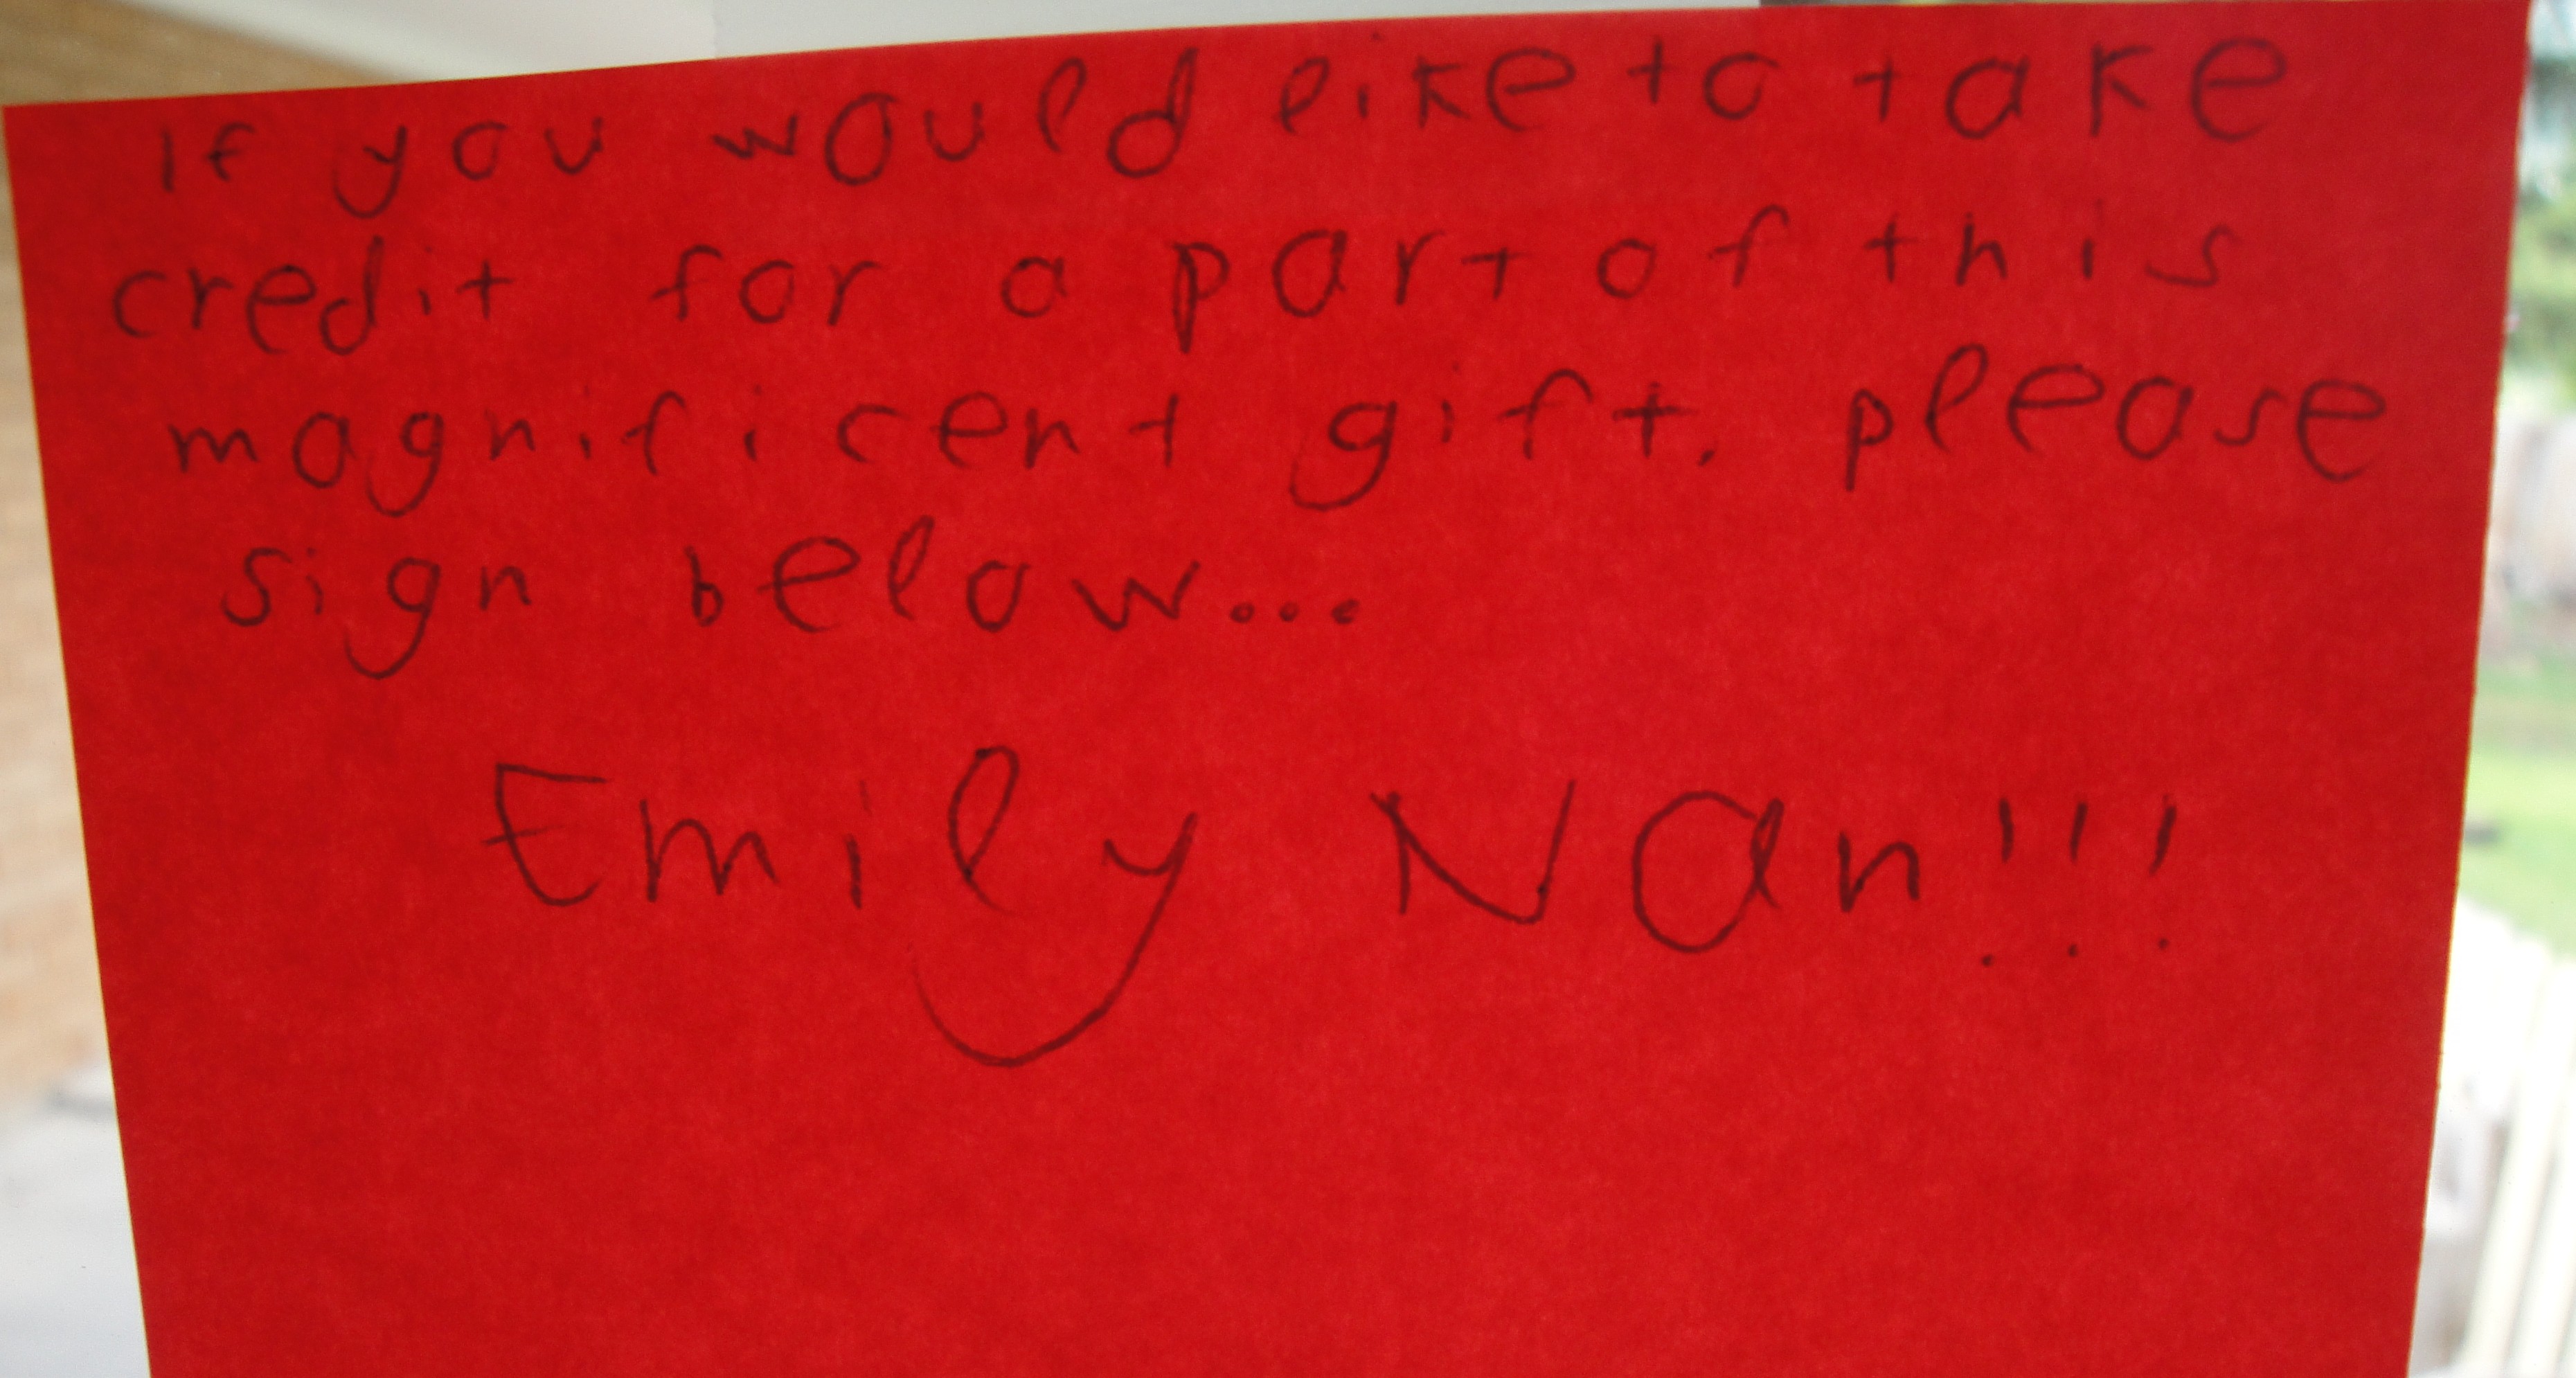 If you would like to take
credit for a part of this
magnificent gift, please
sign below...
Emily Nan!!!